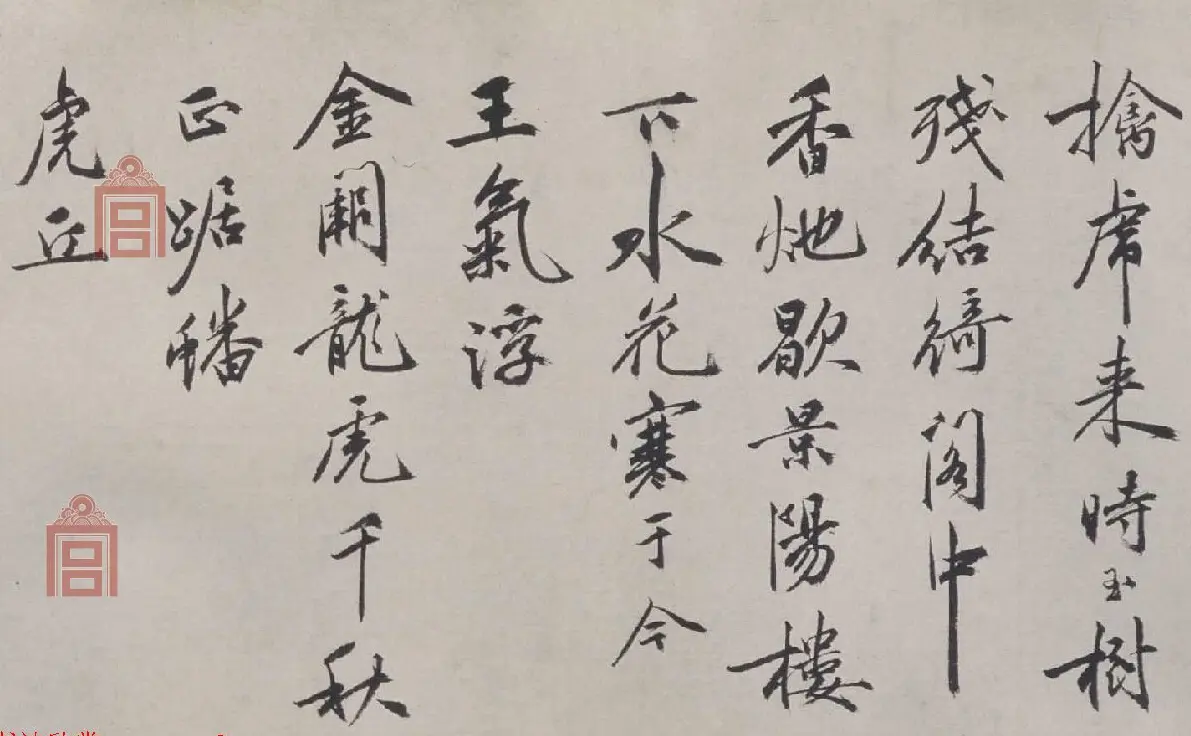 擒虎来時玉樹
殘結綺閣中
香炧歇景陽樓
下水花寒于今
王氣浮
金闕龍虎千秋
正踞蟠
虎丘